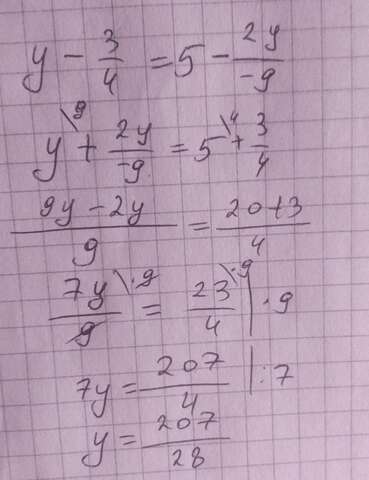 y - 3/4 = 5 - 2y/-9
y\9 + 2y/-9 = 5\4 + 3/4
9y - 2y/9 = 20+3/4
7y/9\·9 = 23/4\·9 |·9
7y = 207/4 |:7
y = 207/28